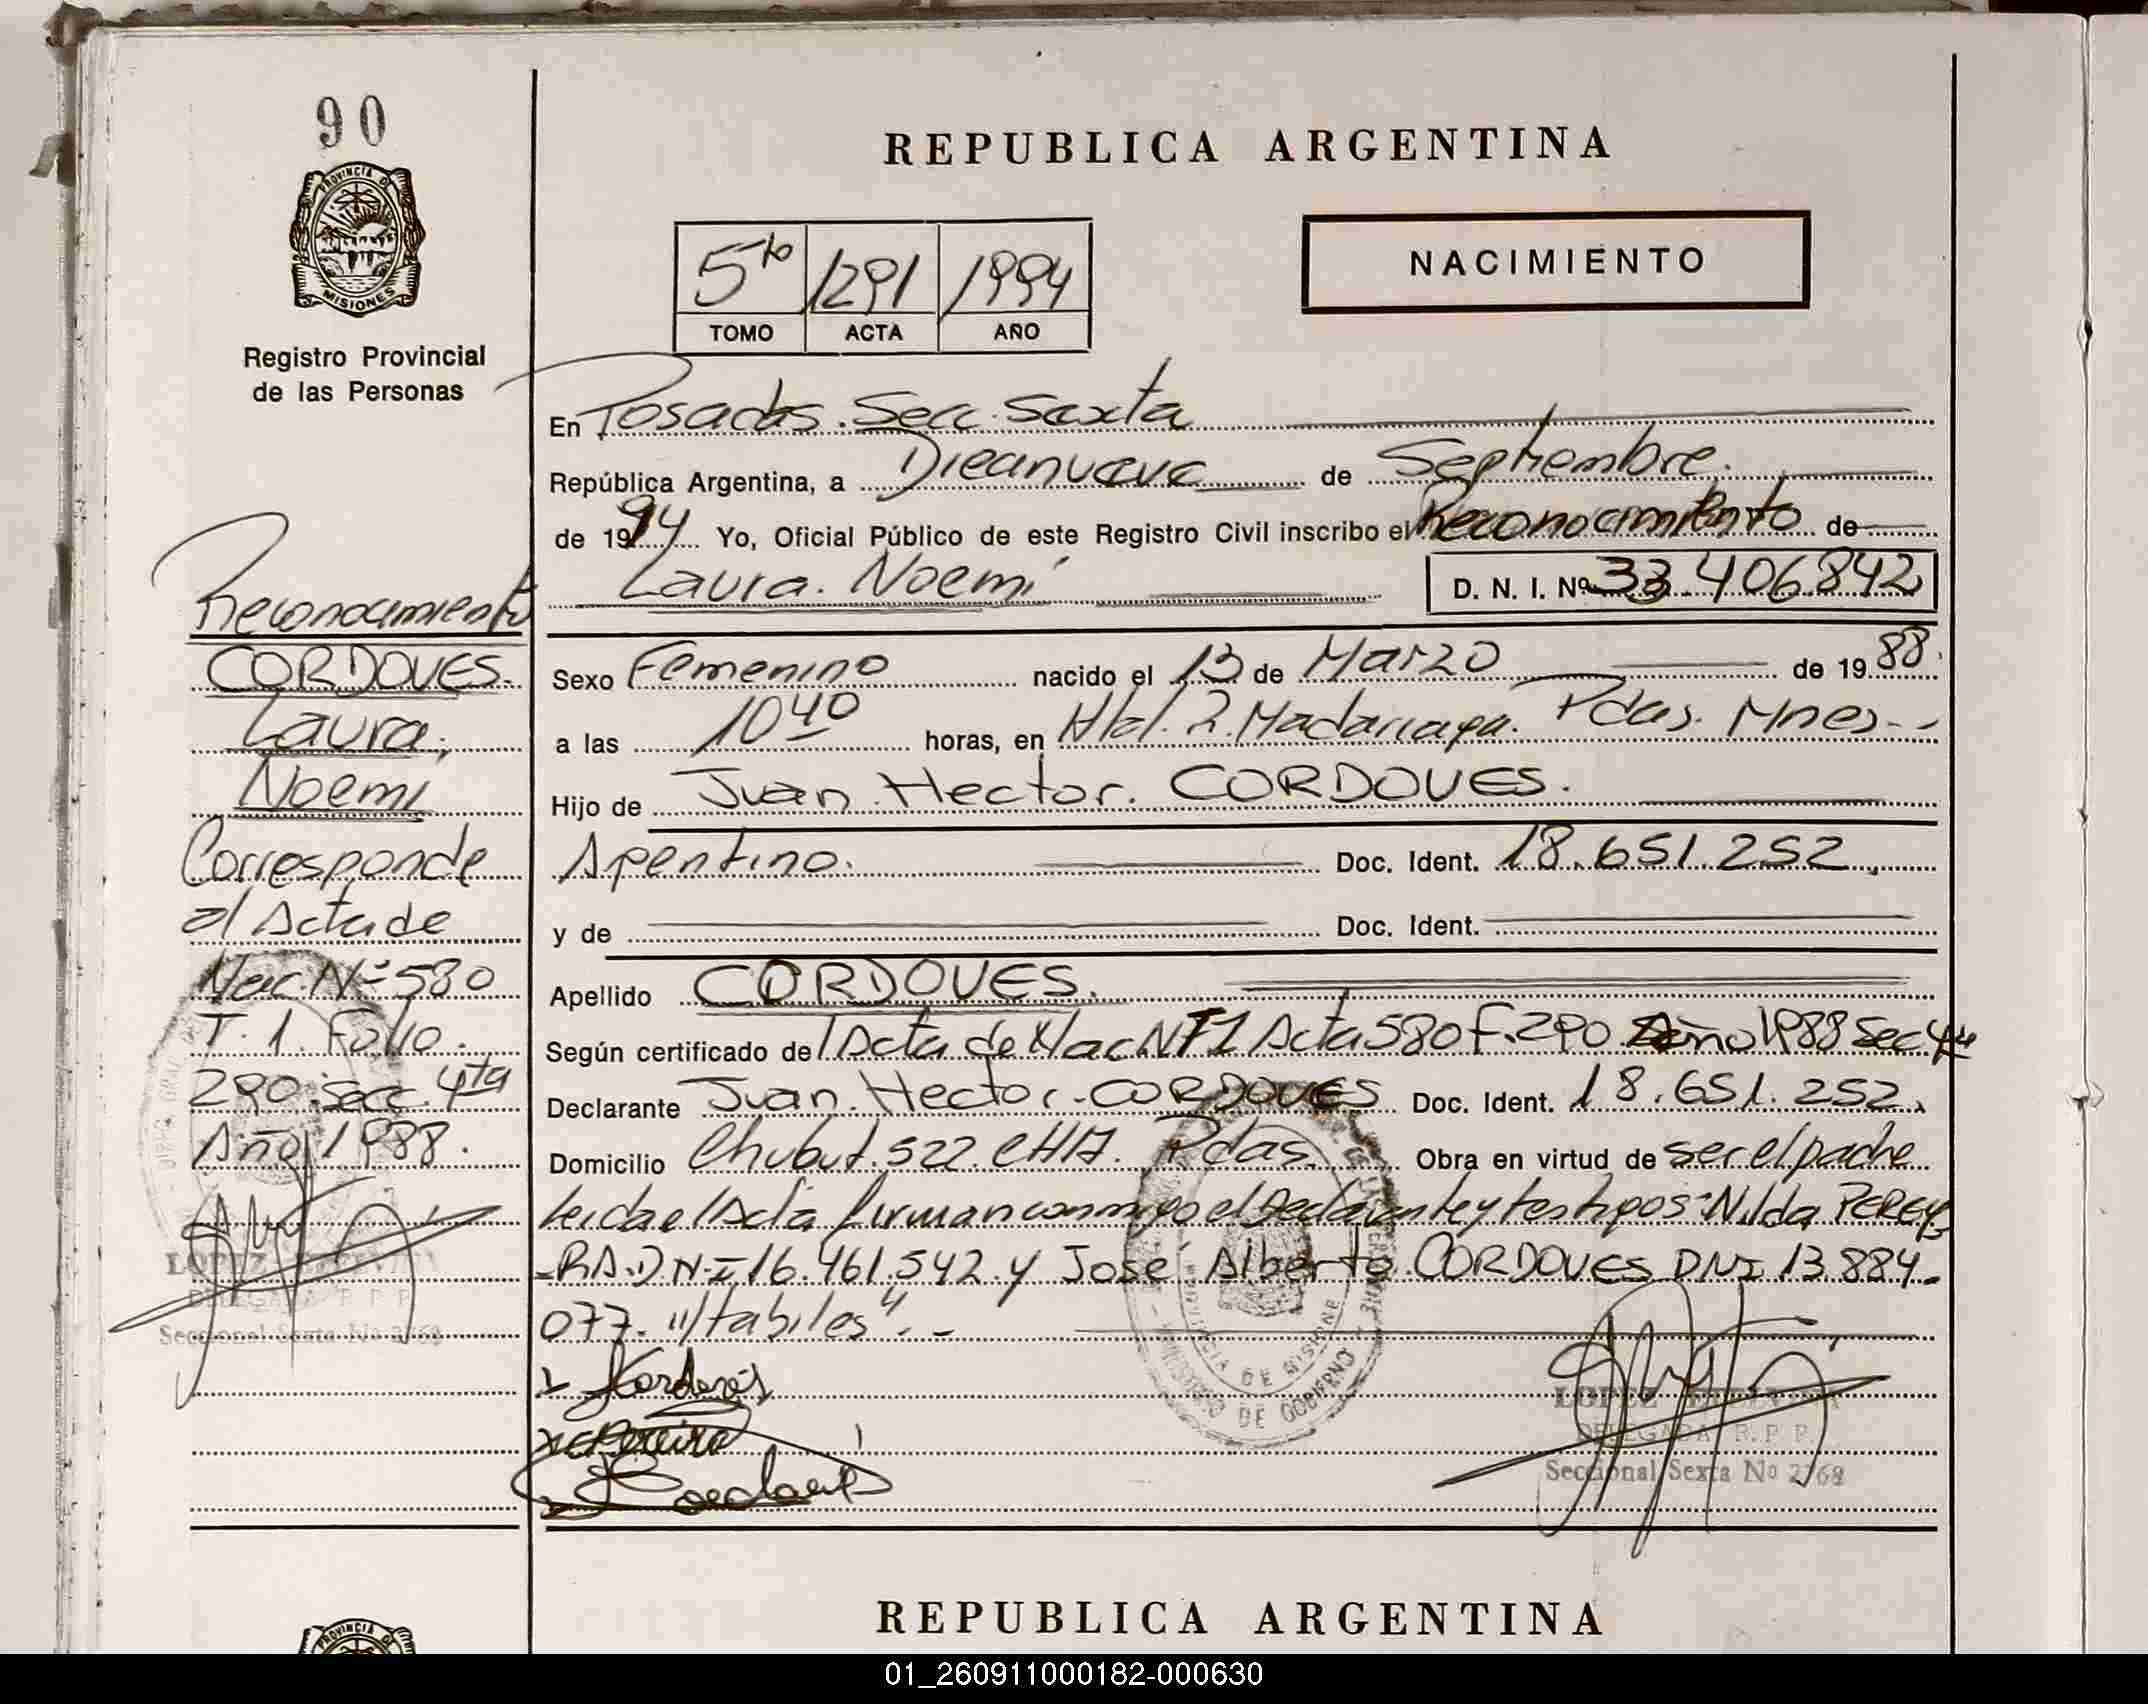 90
PROVINCIA DE
MISIONES
Registro Provincial
de las Personas
Reconocimiento
CORDOVES.
Laura,
Noemí
Corresponde
al Acta de
Nac. Nº 580
T. 1. Folio.
290. Secc. 4ta
Año 1988.
LOPEZ
DELEGADA R. P. P.
Seccional Sexta No 2762
REPUBLICA ARGENTINA
5to 1291 1994
TOMO ACTA AÑO
NACIMIENTO
En Posadas. Secc. Sexta
República Argentina, a Diecinueve de Septiembre.
de 1994 Yo, Oficial Público de este Registro Civil inscribo el Reconocimiento de
Laura. Noemí D. N. I. Nº 33.406.842
Sexo Femenino nacido el 13 de Marzo de 1988.
a las 10 40 horas, en Htal. R. Madariaga. Pdas. Mnes.-
Hijo de Juan. Hector. CORDOVES.
Argentino. Doc. Ident. 18.651.252
y de Doc. Ident.
Apellido CORDOVES.
Según certificado de Acta de Nac. T 1 Acta 580 F. 290 Año 1988 Sec 4ta
Declarante Juan. Hector. CORDOVES Doc. Ident. 18.651.252.
Domicilio Chubut. 522. CH 17. Pdas. Obra en virtud de ser el padre
Leida el Acta firman conmigo el Declarante y testigos: Nilda PEREY
-RA. DNI 16.461.542 y José Alberto CORDOVES DNI 13.884-
077. "Habiles".-
PROVINCIA DE MISIONES
MINISTERIO DE GOBIERNO
LOPEZ
DELEGADA R. P. P.
Seccional Sexta No 2762
REPUBLICA ARGENTINA
PROVINCIA DE
01_260911000182-000630